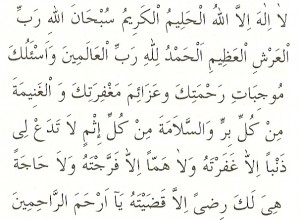 لَا اِلٰهَ اِلاَّ اللهُ الْحَلِيمُ الْكَرِيمُ سُبْحَانَ اللهِ رَبِّ
الْعَرْشِ الْعَظِيمِ اَلْحَمْدُ لِلّٰهِ رَبِّ الْعَالَمِينَ وَاَسْئَلُكَ
مُوجِبَاتِ رَحْمَتِكَ وَعَزَائِمَ مَغْفِرَتِكَ وَ الْغَنِيمَةَ
مِنْ كُلِّ بِرٍّ وَالسَّلَامَةَ مِنْ كُلِّ اِثْمٍ لَا تَدَعْ لِى
ذَنْبًا اِلاَّ غَفَرْتَهُ وَلَا هَمًّا اِلاَّ فَرَّجْتَهُ وَلَا حَاجَةً
هِىَ لَكَ رِضىً اِلاَّ قَضَيْتَهُ يَآ اَرْحَمَ الرَّاحِمِينَ